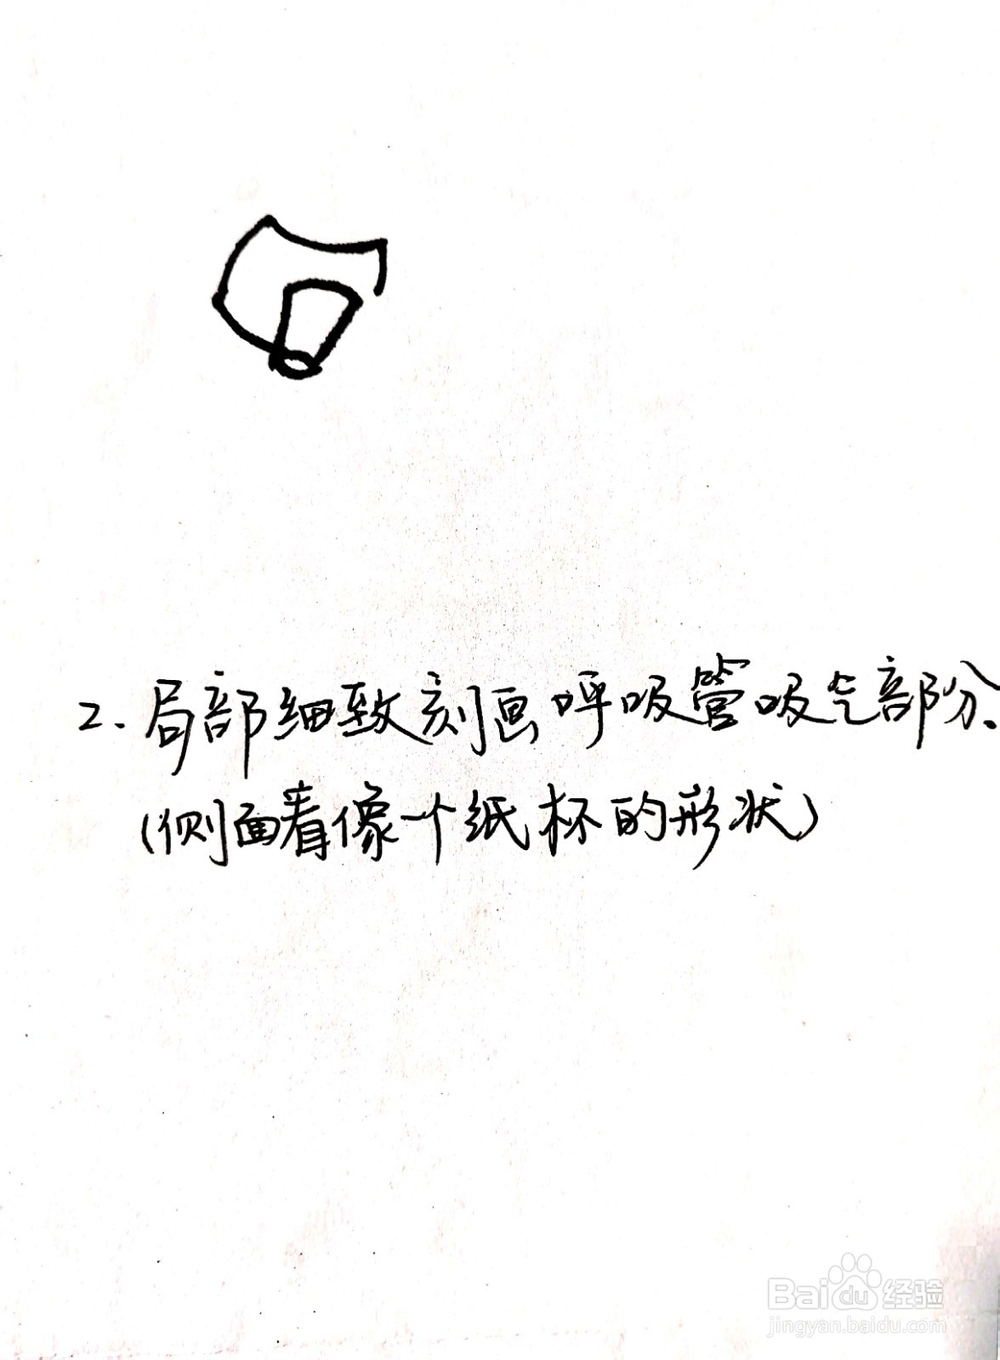 2.局部细致刻画呼吸管吸气部分.
(侧面看像一个纸杯的形状)
Baidu经验
jingyan.baidu.com